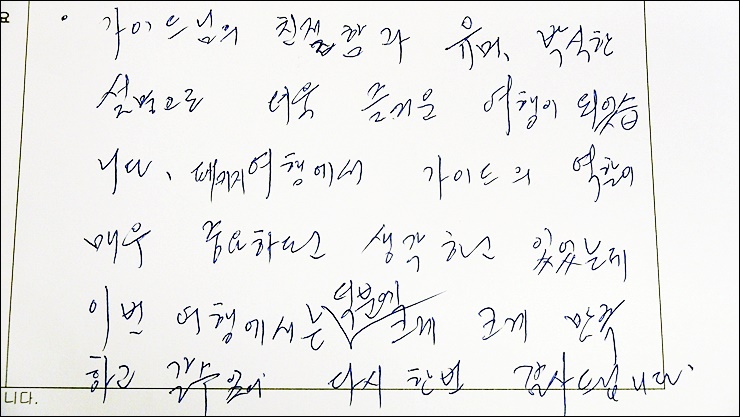 요
· 가이드님의 친절함과 유머, 박식한
설명으로 더욱 즐거운 여행이 되었습
니다. 패키지여행에서 가이드의 역할이
매우 중요하다고 생각하고 있었는데
이번 여행에서는 덕분에 크게 크게 만족
하고 갈수 있어 다시 한번 감사드립니다.
니다.